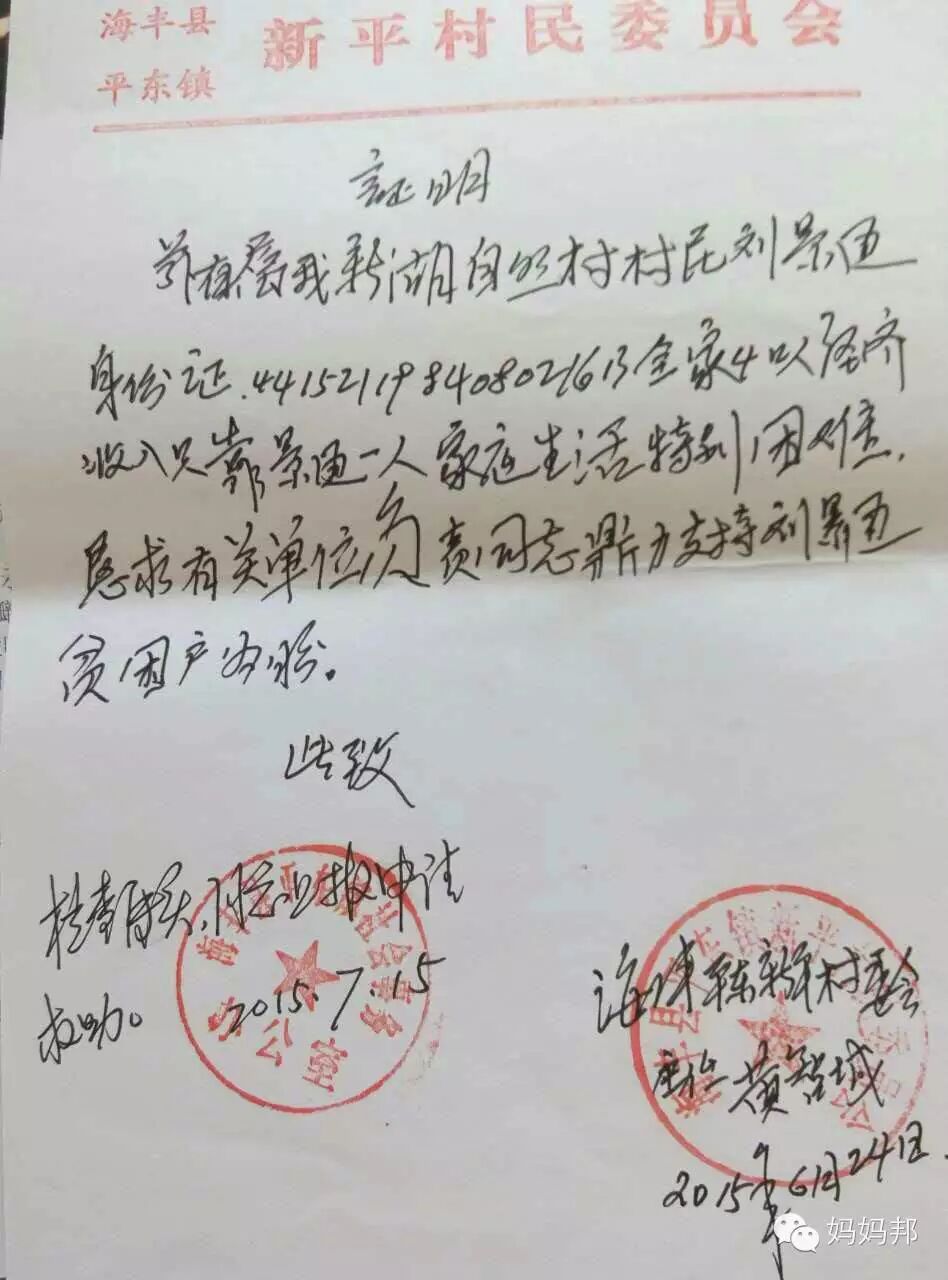 海丰县
平东镇
新平村民委员会
证明
兹有我新湖自然村村民刘景通
身份证.441521198408021613全家4口人经济
收入只靠景通一人家庭生活特别困难，
恳求有关单位负责同志鼎力支持刘景通
贫困户为盼。
此致
核查情况属实，同意上报申请
救助。
2015.7.15
海丰平东新平村委会
主任 黄智城
2015年6月24日
公室
妈妈邦